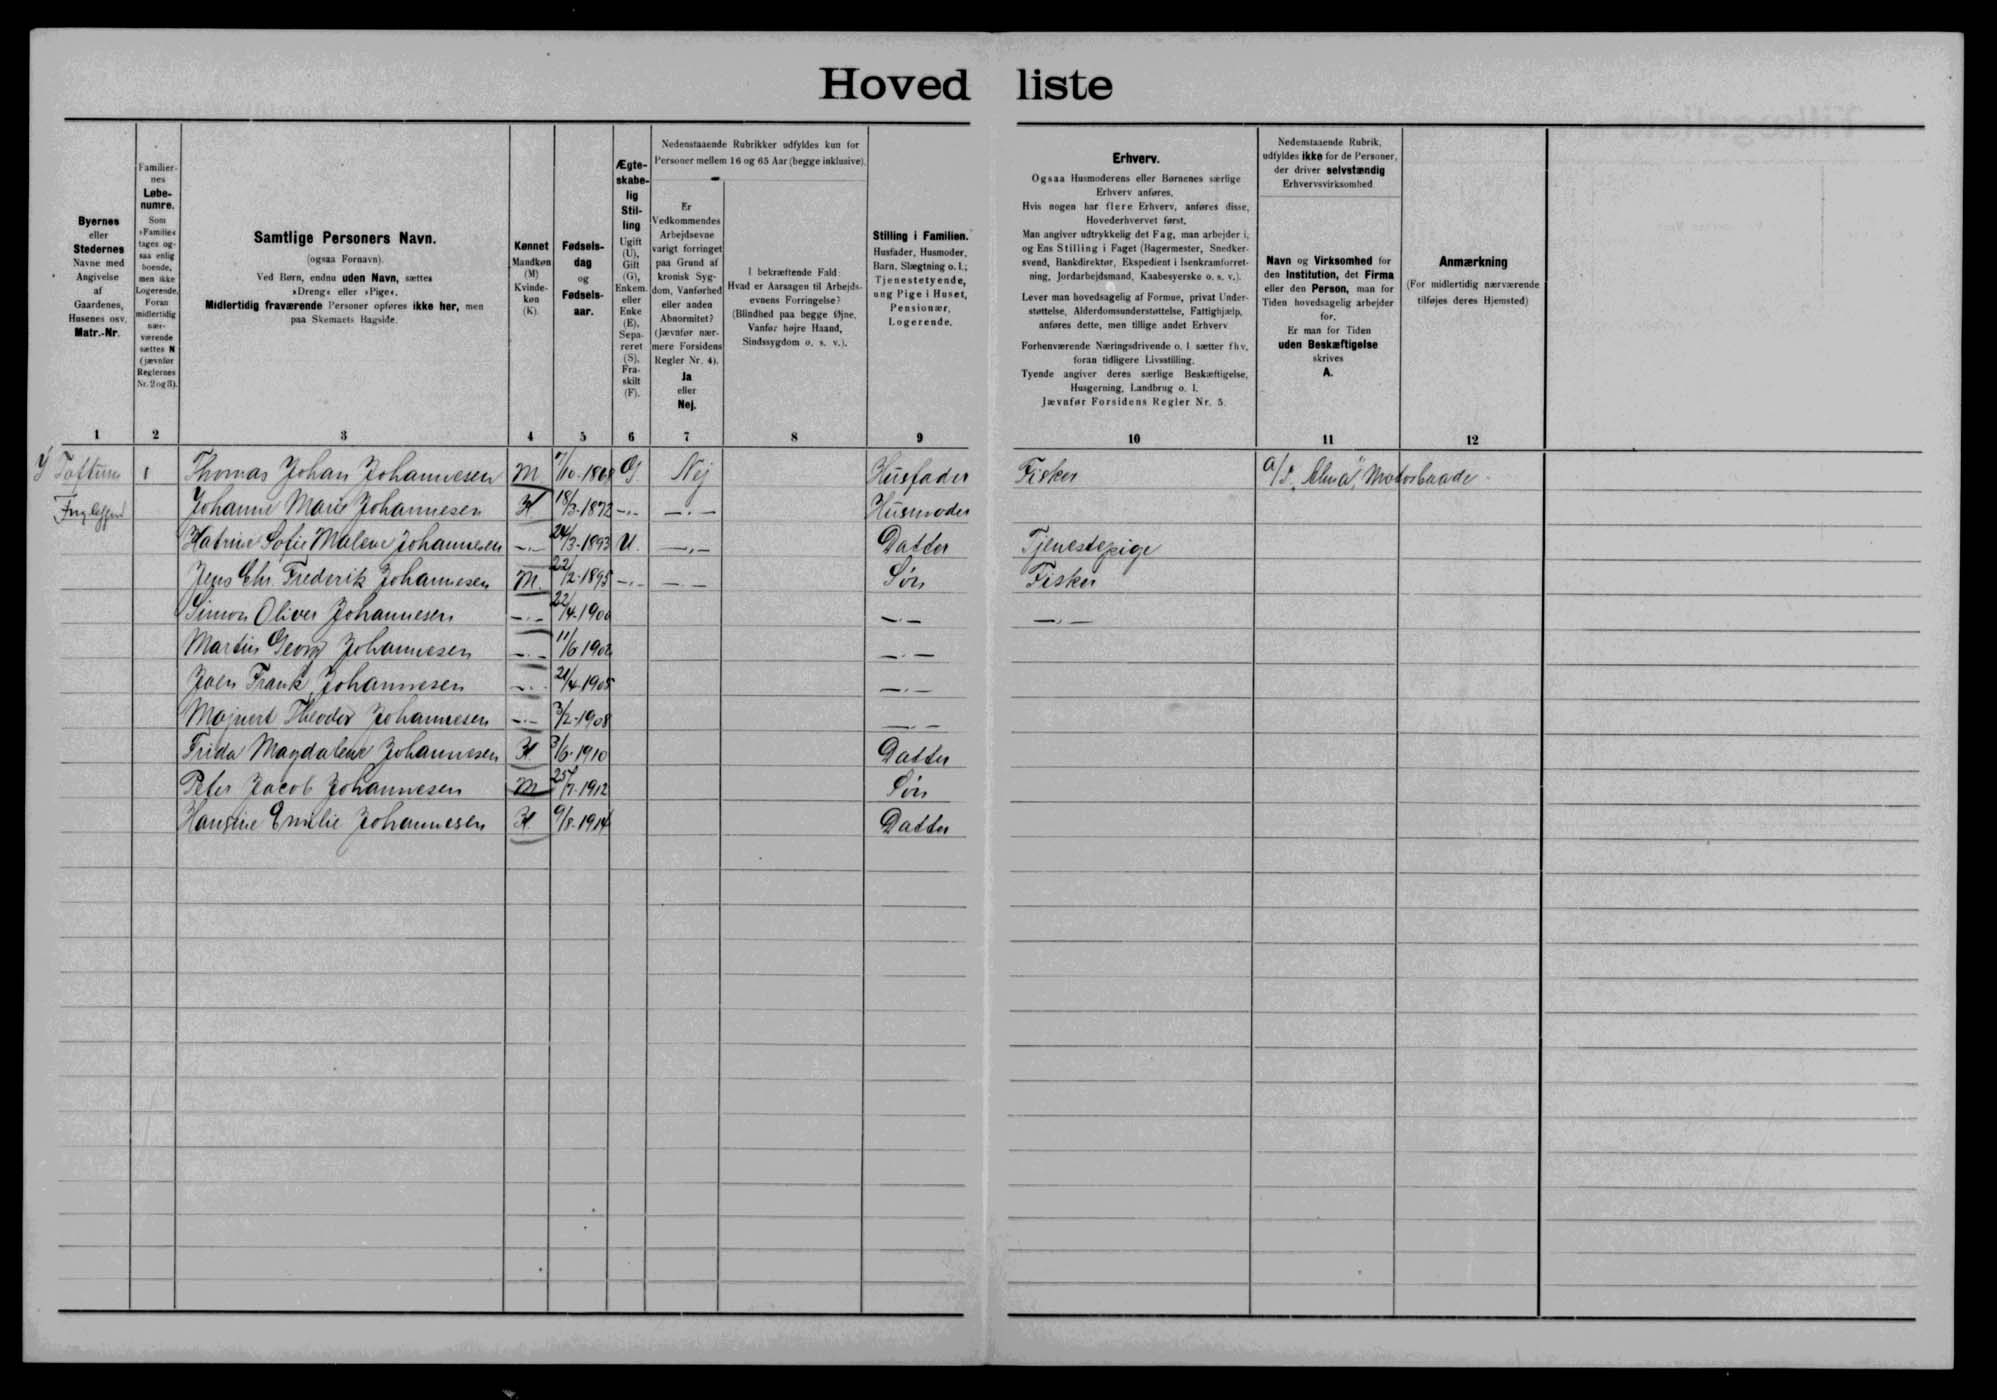 Hoved liste
Byernes
eller
Stedernes
Navne med
Angivelse
af
Gaardenes,
Husenes osv.
Matr.-Nr.
Familier-
nes
Løbe-
numre.
Som
»Familie«
tages og-
saa enlig
boende,
men ikke
Logerende.
Foran
midlertidig
nær-
værende
sættes N
(jævnfør
Reglernes
Nr. 2 og 3).
Samtlige Personers Navn.
(ogsaa Fornavn).
Ved Børn, endnu uden Navn, sættes
»Dreng« eller »Pige«.
Midlertidig fraværende Personer opføres ikke her, men
paa Skemaets Bagside.
Kønnet
Mandkøn
(M)
Kvinde-
køn
(K).
Fødsels-
dag
og
Fødsels-
aar.
Ægte-
skabe-
lig
Stil-
ling
Ugift
(U),
Gift
(G),
Enkem.
eller
Enke
(E),
Sepa-
reret
(S),
Fra-
skilt
(F).
Nedenstaaende Rubrikker udfyldes kun for
Personer mellem 16 og 65 Aar (begge inklusive).
Er
Vedkommendes
Arbejdsevne
varigt forringet
paa Grund af
kronisk Syg-
dom, Vanførhed
eller anden
Abnormitet?
(Jævnfør nær-
mere Forsidens
Regler Nr. 4).
Ja
eller
Nej.
I bekræftende Fald:
Hvad er Aarsagen til Arbejds-
evnens Forringelse?
(Blindhed paa begge Øjne,
Vanfør højre Haand,
Sindssygdom o. s. v.).
Stilling i Familien.
Husfader, Husmoder,
Barn, Slægtning o. l.;
Tjenestetyende,
ung Pige i Huset,
Pensionær,
Logerende.
Erhverv.
Ogsaa Husmoderens eller Børnenes særlige
Erhverv anføres.
Hvis nogen har flere Erhverv, anføres disse,
Hovederhvervet først.
Man angiver udtrykkelig det Fag, man arbejder i,
og Ens Stilling i Faget (Bagermester, Snedker-
svend, Bankdirektør, Ekspedient i Isenkramforret-
ning, Jordarbejdsmand, Kaabesyerske o. s. v.).
Lever man hovedsagelig af Formue, privat Under-
støttelse, Alderdomsunderstøttelse, Fattighjælp,
anføres dette, men tillige andet Erhverv
Forhenværende Næringsdrivende o. l. sætter fhv.
foran tidligere Livsstilling.
Tyende angiver deres særlige Beskæftigelse,
Husgerning, Landbrug o. l.
Jævnfør Forsidens Regler Nr. 5.
Nedenstaaende Rubrik,
udfyldes ikke for de Personer,
der driver selvstændig
Erhvervsvirksomhed
Navn og Virksomhed for
den Institution, det Firma
eller den Person, man for
Tiden hovedsagelig arbejder
for.
Er man for Tiden
uden Beskæftigelse
skrives
A.
Anmærkning
(For midlertidig nærværende
tilføjes deres Hjemsted)
1 2 3 4 5 6 7 8 9 10 11 12
1 Thomas Johan Johannesen M G Nej Husfader Fisker Motorbaade
Johanne Marie Johannesen K 18/3-1872 -.- -.- Husmoder
Katrine Sofie Malene Johannesen -.- 24/3-1893 U. -.- Datter Tjenestepige
Jens Chr. Frederik Johannesen M. 22/2-1895 -.- -.- Søn Fisker
Simon Oliver Johannesen -.- 22/4-1900 -.- -.-
Martin Georg Johannesen -.- 11/6 1902 -.-
Joen Frank Johannesen -.- 21/4-1905 -.-
Theodor Johannesen -.- 3/2-1908 -.-
Frida Magdalene Johannesen K. 3/6-1910 Datter
Peter Jacob Johannesen M 25/7-1912 Søn
Hansine Emilie Johannesen K. 9/8-1914 Datter